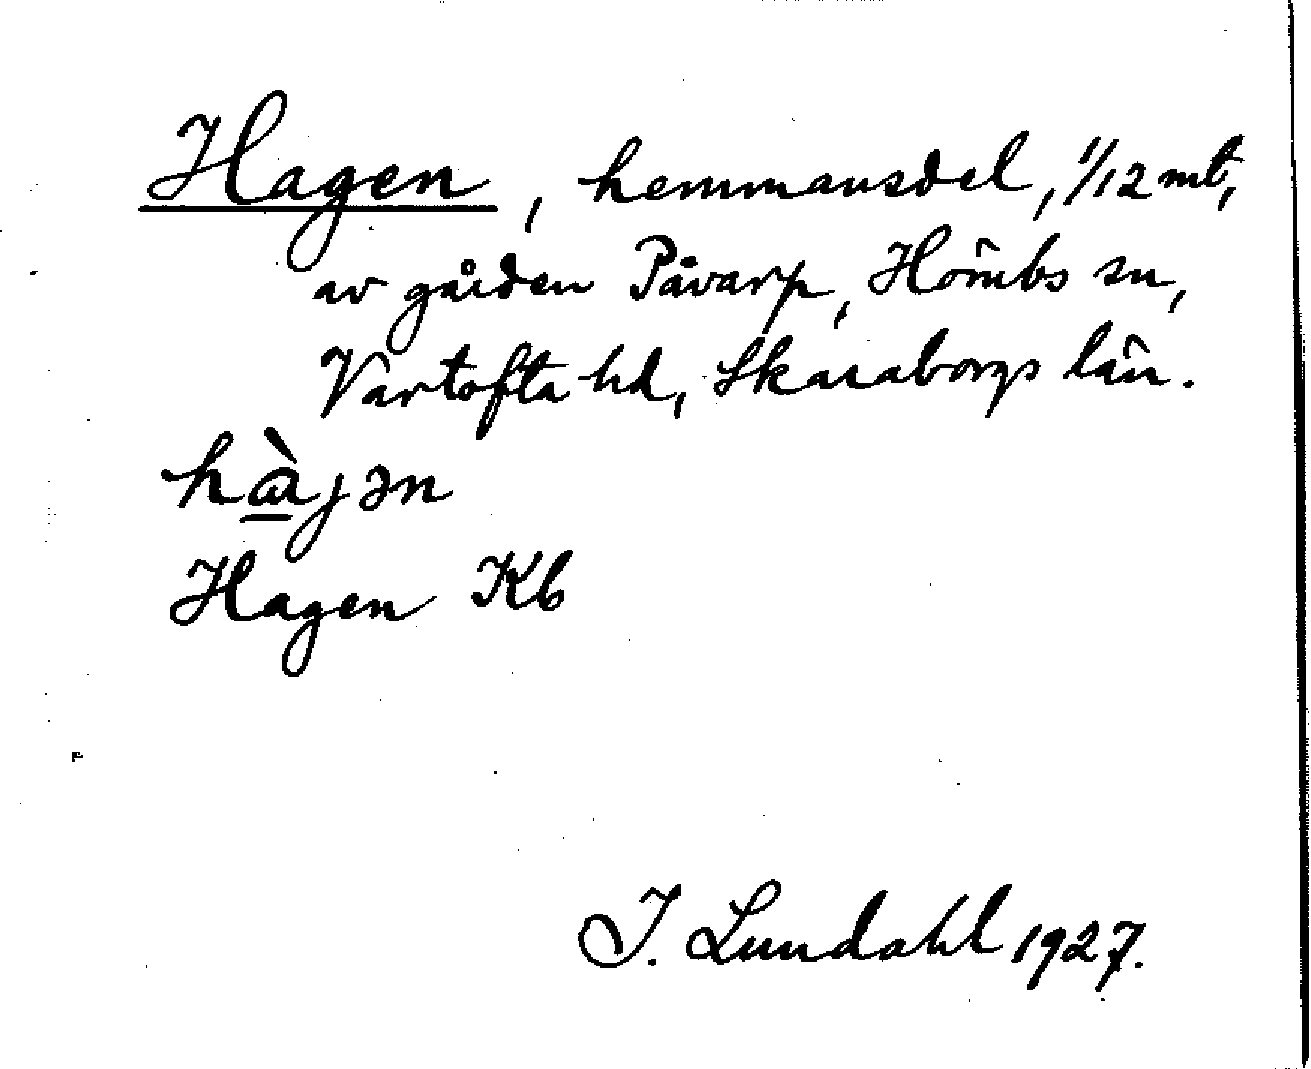 Hagen, hemmansdel, 1/12 mt,
av gården Påvarp, Hömbs sn,
Vartofta hd, Skaraborgs län.
hàjən
Hagen Kb
J. Lundahl 1927.